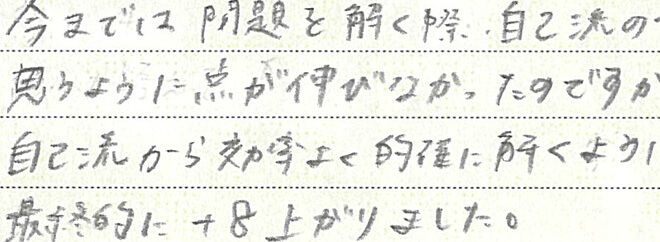 今までは問題を解く際、自己流の
思うように点が伸びなかったのですが
自己流から効率よく的確に解くように
最終的に+8上がりました。